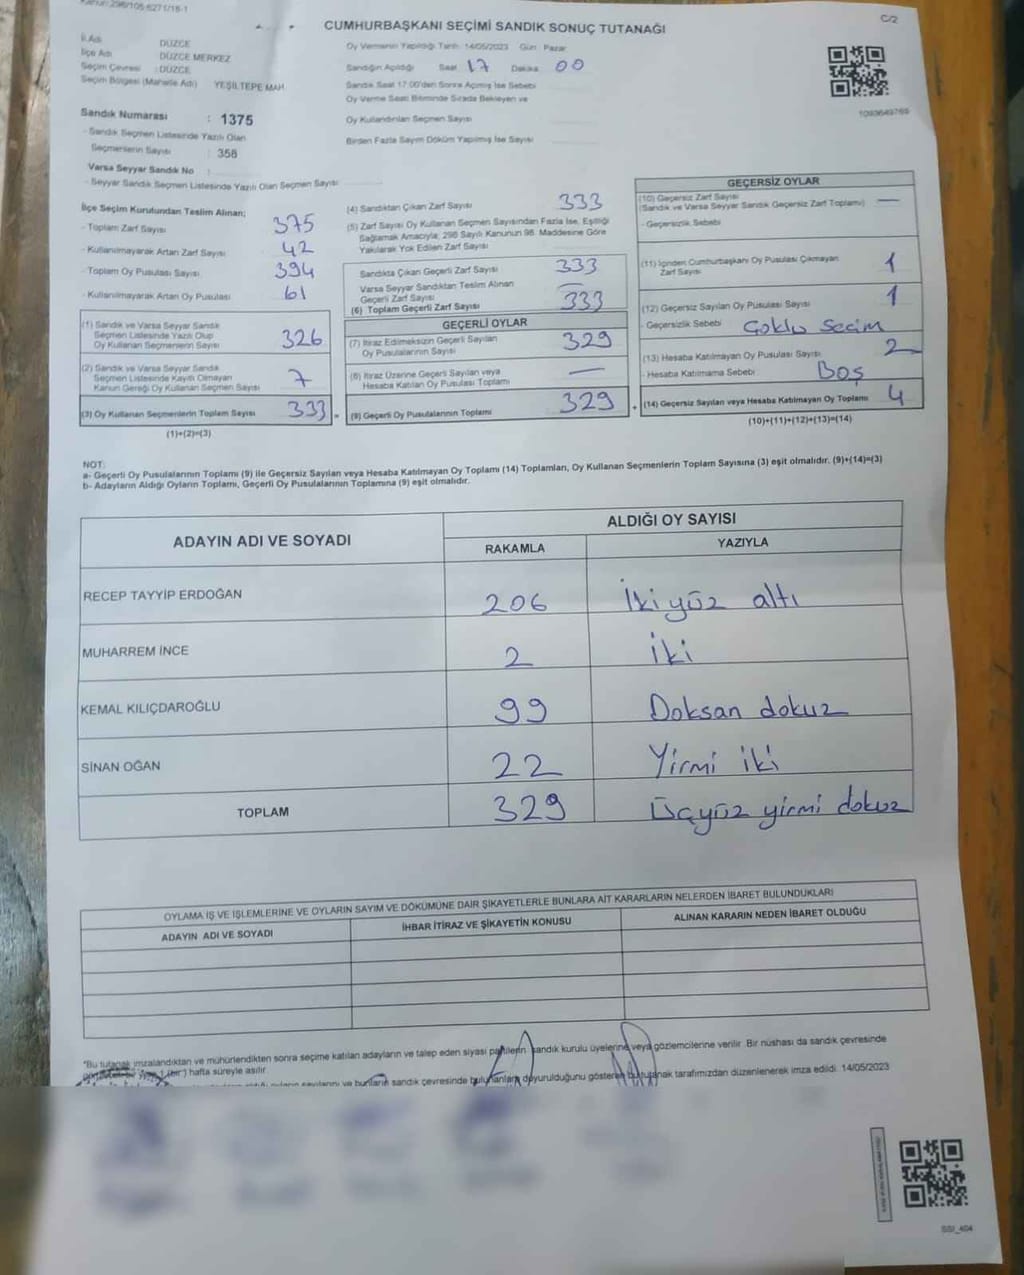 Kanun:298/105-6271/18-1
C/2
CUMHURBAŞKANI SEÇİMİ SANDIK SONUÇ TUTANAĞI
İl Adı DÜZCE
İlçe Adı DÜZCE MERKEZ
Seçim Çevresi : DÜZCE
Seçim Bölgesi (Mahalle Adı) YEŞİLTEPE MAH
Oy Vermenin Yapıldığı Tarih: 14/05/2023 Gün: Pazar
Sandığın Açıldığı Saat 17 Dakika 00
Sandık Saat 17:00'den Sonra Açılmış İse Sebebi
Oy Verme Saati Bitiminde Sırada Bekleyen ve
Oy Kullandırılan Seçmen Sayısı
Birden Fazla Sayım Döküm Yapılmış İse Sayısı
1093649769
Sandık Numarası : 1375
- Sandık Seçmen Listesinde Yazılı Olan
Seçmenlerin Sayısı : 358
Varsa Seyyar Sandık No :
- Seyyar Sandık Seçmen Listesinde Yazılı Olan Seçmen Sayısı
İlçe Seçim Kurulundan Teslim Alınan;
- Toplam Zarf Sayısı 375
- Kullanılmayarak Artan Zarf Sayısı 42
- Toplam Oy Pusulası Sayısı 394
- Kullanılmayarak Artan Oy Pusulası 61
(1) Sandık ve Varsa Seyyar Sandık
Seçmen Listesinde Yazılı Olup
Oy Kullanan Seçmenlerin Sayısı 326
(2) Sandık ve Varsa Seyyar Sandık
Seçmen Listesinde Kayıtlı Olmayan
Kanun Gereği Oy Kullanan Seçmen Sayısı 7
(3) Oy Kullanan Seçmenlerin Toplam Sayısı 333 =
(1)+(2)=(3)
(4) Sandıktan Çıkan Zarf Sayısı 333
(5) Zarf Sayısı Oy Kullanan Seçmen Sayısından Fazla İse, Eşitliği
Sağlamak Amacıyla; 298 Sayılı Kanunun 98. Maddesine Göre
Yakılarak Yok Edilen Zarf Sayısı
Sandıkta Çıkan Geçerli Zarf Sayısı 333
Varsa Seyyar Sandıktan Teslim Alınan
Geçerli Zarf Sayısı —
(6) Toplam Geçerli Zarf Sayısı 333
GEÇERLİ OYLAR
(7) İtiraz Edilmeksizin Geçerli Sayılan
Oy Pusulalarının Sayısı 329
(8) İtiraz Üzerine Geçerli Sayılan veya
Hesaba Katılan Oy Pusulası Toplamı —
(9) Geçerli Oy Pusulalarının Toplamı 329 +
GEÇERSİZ OYLAR
(10) Geçersiz Zarf Sayısı
(Sandık ve Varsa Seyyar Sandık Geçersiz Zarf Toplamı) —
- Geçersizlik Sebebi
(11) İçinden Cumhurbaşkanı Oy Pusulası Çıkmayan
Zarf Sayısı 1
(12) Geçersiz Sayılan Oy Pusulası Sayısı 1
- Geçersizlik Sebebi Çoklu Seçim
(13) Hesaba Katılmayan Oy Pusulası Sayısı 2
- Hesaba Katılmama Sebebi Boş
(14) Geçersiz Sayılan veya Hesaba Katılmayan Oy Toplamı 4
(10)+(11)+(12)+(13)=(14)
NOT:
a- Geçerli Oy Pusulalarının Toplamı (9) ile Geçersiz Sayılan veya Hesaba Katılmayan Oy Toplamı (14) Toplamları, Oy Kullanan Seçmenlerin Toplam Sayısına (3) eşit olmalıdır. (9)+(14)=(3)
b- Adayların Aldığı Oyların Toplamı, Geçerli Oy Pusulalarının Toplamına (9) eşit olmalıdır.
ADAYIN ADI VE SOYADI
ALDIĞI OY SAYISI
RAKAMLA YAZIYLA
RECEP TAYYİP ERDOĞAN 206 İkiyüz altı
MUHARREM İNCE 2 İki
KEMAL KILIÇDAROĞLU 99 Doksan dokuz
SİNAN OĞAN 22 Yirmi iki
TOPLAM 329 Üçyüz yirmi dokuz
OYLAMA İŞ VE İŞLEMLERİNE VE OYLARIN SAYIM VE DÖKÜMÜNE DAİR ŞİKAYETLERLE BUNLARA AİT KARARLARIN NELERDEN İBARET BULUNDUKLARI
ADAYIN ADI VE SOYADI İHBAR İTİRAZ VE ŞİKAYETİN KONUSU ALINAN KARARIN NEDEN İBARET OLDUĞU
"Bu tutanak imzalandıktan ve mühürlendikten sonra seçime katılan adayların ve talep eden siyasi partilerin sandık kurulu üyelerine veya gözlemcilerine verilir. Bir nüshası da sandık çevresinde
1 (bir) hafta süreyle asılır.
oyların sayılarını ve bunların sandık çevresinde bulunanlara duyurulduğunu gösteren bu tutanak tarafımızdan düzenlenerek imza edildi. 14/05/2023
SSI_404